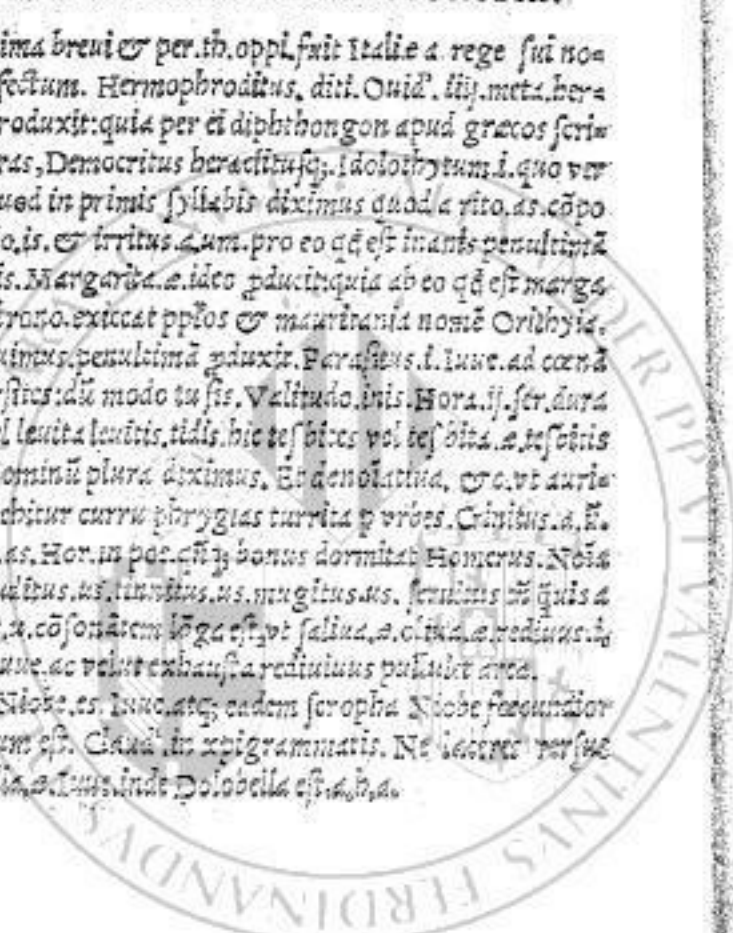 ima breui & per.th.oppi.fuit Italie a rege sui no=
fectum. Hermophroditus. diti. Ouid'. iiij.meta.her=
roduxit:quia per ei diphthongon apud græcos scri=
ras,Democritus heraclitusq;.Idolothytum.i.quo ver
uod in primis syllabis diximus quod a rito.as.cõpo
o.is.& irritus.a.um.pro eo qđ est inanis penultimã
is.Margarita.æ.ideo ꝓducit:quia ab eo qđ est marga
trono.exiccat pp̃los & mauritania nomẽ Orithyia.
uimus.penultimã ꝓduxit.Parasitus.i.Iuue.ad cœnã
rsites:dũ modo tu sis.Valitudo.inis.Hora.ij.ser.dura
ol leuita leuitis.tidis.hic tesbites vel tesbita.æ.tesbitis
ominũ plura diximus. Et denoiatiua, &c.vt auri=
ehitur curru phrygias turrita p vrbes.Crinitus.a.ũ.
.as.Hor.in poe.qñ bonus dormitat Homerus.Noĩa
uditus.us.tinnitus.us.mugitus.us. seruitus a
.u.cõsonãtem lõga est,vt saliua.æ.oliua.æ.rediuus.
uue.ac velut exhausta rediuiuus pullulet arca.
Niobe.es. Iuue.atq; eadem scropha Niobe fœcundior
um est. Claud'.in xpigrammatis. Ne laceres versus
lla.æ.Iuue.inde Dolobella est.a.b.a.
VALENTINVS FERDINANDVS